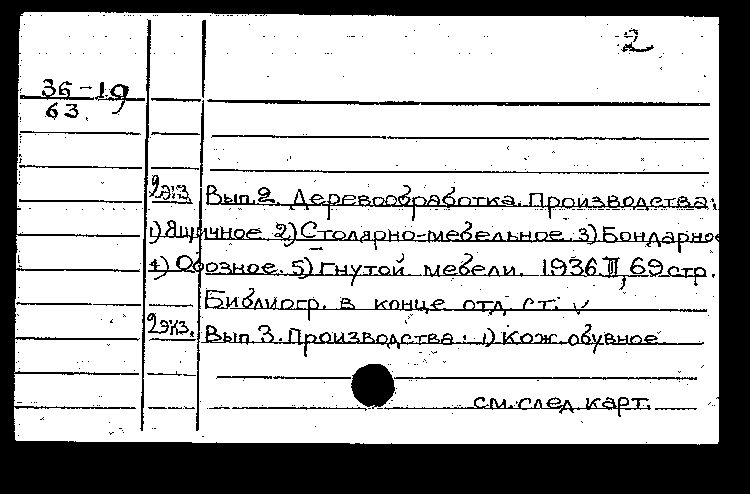 2
36-19
63.
2экз. Вып.2. Деревообработка. Производства:
1) Ящичное. 2) Столярно-мебельное. 3) Бондарное
4) Обозное. 5) Гнутой мебели. 1936. III, 69 стр.
Библиогр. в конце отд. ст. v
2экз. Вып. 3. Производства: 1) Кож. обувное
см. след. карт.